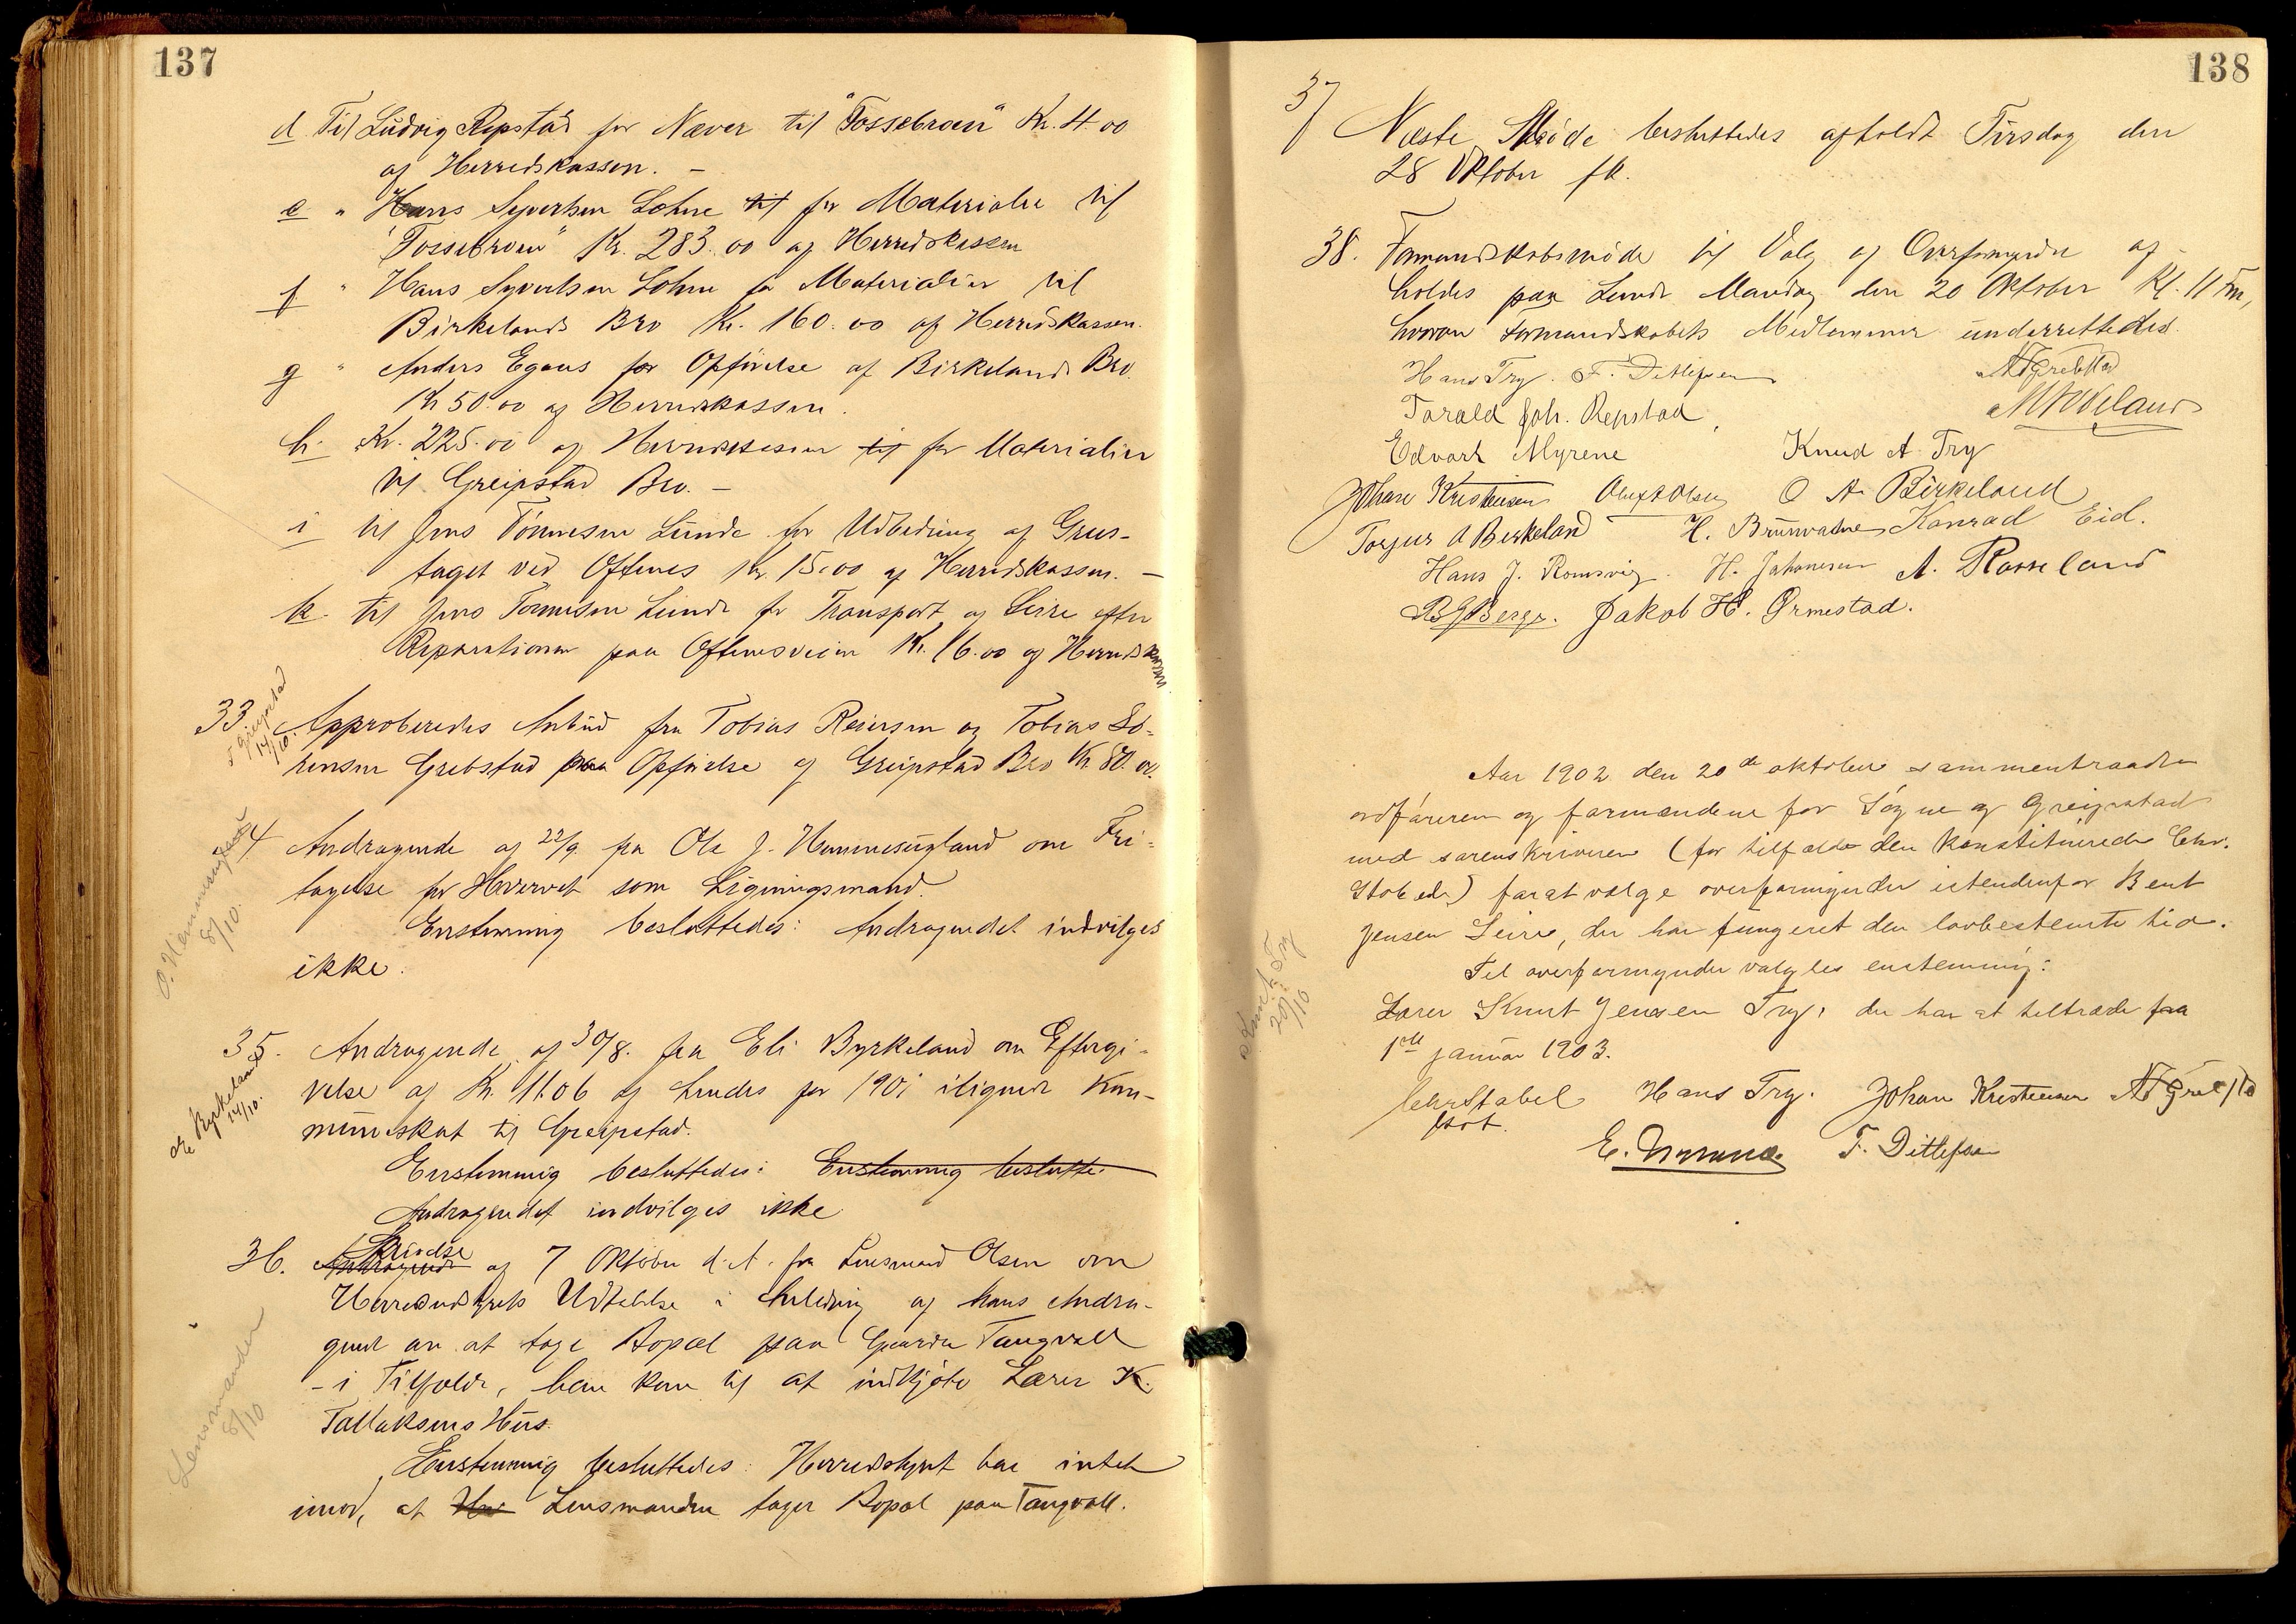 137
d Til Ludvig Repstad for Næver til "Fossebroen" Kr. 4.00
af Herredskassen. -
e " Hans Syvertsen Lohne til for Materialer til
"Fossebroen" Kr. 283.00 af Herredskassen
f " Hans Syvertsen Lohne for Materialier til
Birkelands Bro Kr. 160.00 af Herredskassen.
g " Anders Egaas for Opførelse af Birkelands Bro
Kr 50.00 af Herredskassen.
h. Kr. 225.00 af Herredskassen til for Materialier
til Greipstad Bro. -
i til Jens Tønnesen Lunde for Udbedring af Grus-
taget ved Oftenes Kr. 15.00 af Herredskassen. -
k. til Jens Tønnesen Lunde for Transport af Leire efter
Reparationen paa Oftenesveien Kr. 16.00 af Herredskassen
33. Approberedes Anbud fra Tobias Reiersen og Tobias Sø-
rensen Grebstad paa Opførelse af Greipstad Bro Kr. 80.00.
Greipstad
14/10.
34 Andragende af 22/9 fra Ole J. Hummesugland om Fri-
tagelse for Hvervet som Ligningsmand.
Enstemmig besluttedes: Andragendet indvilges
ikke.
O. Hummesugland
8/10.
35. Andragende af 30/8. fra Eli Byrkeland om Eftergi-
velse af Kr. 11.06 af hendes for 1901 ilignede Kom-
muneskat til Greipstad.
Enstemmig besluttedes: Enstemmig beslutte
Andragendet indvilges ikke
Byrkeland
14/10.
36. Andragende Skrivelse af 7 Oktober d.A. fra Lensmand Olsen om
Herredsstyrets Udtalelse i Anledning af hans Andra-
gende om at tage Bopæl paa Gaarden Tangvall
- i Tilfælde, han kom til at indkjøbe Lærer K.
Tallaksens Hus.
Enstemmig besluttedes: Herredsstyret har intet
imod, at Lensmanden tager Bopæl paa Tangvall.
Lensmanden
8/10
138
37 Næste Møde besluttedes afholdt Tirsdag den
28 Oktober fk.
38. Formandskabsmøde til Valg af Overformynder af-
holdes paa Lunde Mandag den 20 Oktober Kl. 11 Fm,
hvorom Formandskabets Medlemmer underrettedes.
Hans Try. F. Ditlefsen A T Grebstad
Tarald Joh. Repstad, Weland
Edvart Myrene Knud A. Try
Johan Kristensen Oluf Olsen O A. Birkeland
Torjus A Berkeland H. Brunvatne Konrad Eid.
Hans J. Romsvig. H. Johanesen A. Rosseland
Berge. Jakob H. Ormestad.
Aar 1902 den 20de oktober sammentraadte
ordføreren og formændene for Søgne og Greipstad
med sorenskriveren (for tilfældet den konstituerede Chr.
Stabel) for at vælge overformynder istedenfor Bent
Jensen Leire, der har fungeret den lovbestemte tid.
Til overformynder valgtes enstemmig:
Lærer Knut Jensen Try, der har at tiltræde fra
1ste januar 1903.
Knut Try
20/10
Chr Stabel Hans Try. Johan Kristensen A T Grebstad
kst.
E. Myrene F. Ditlefsen